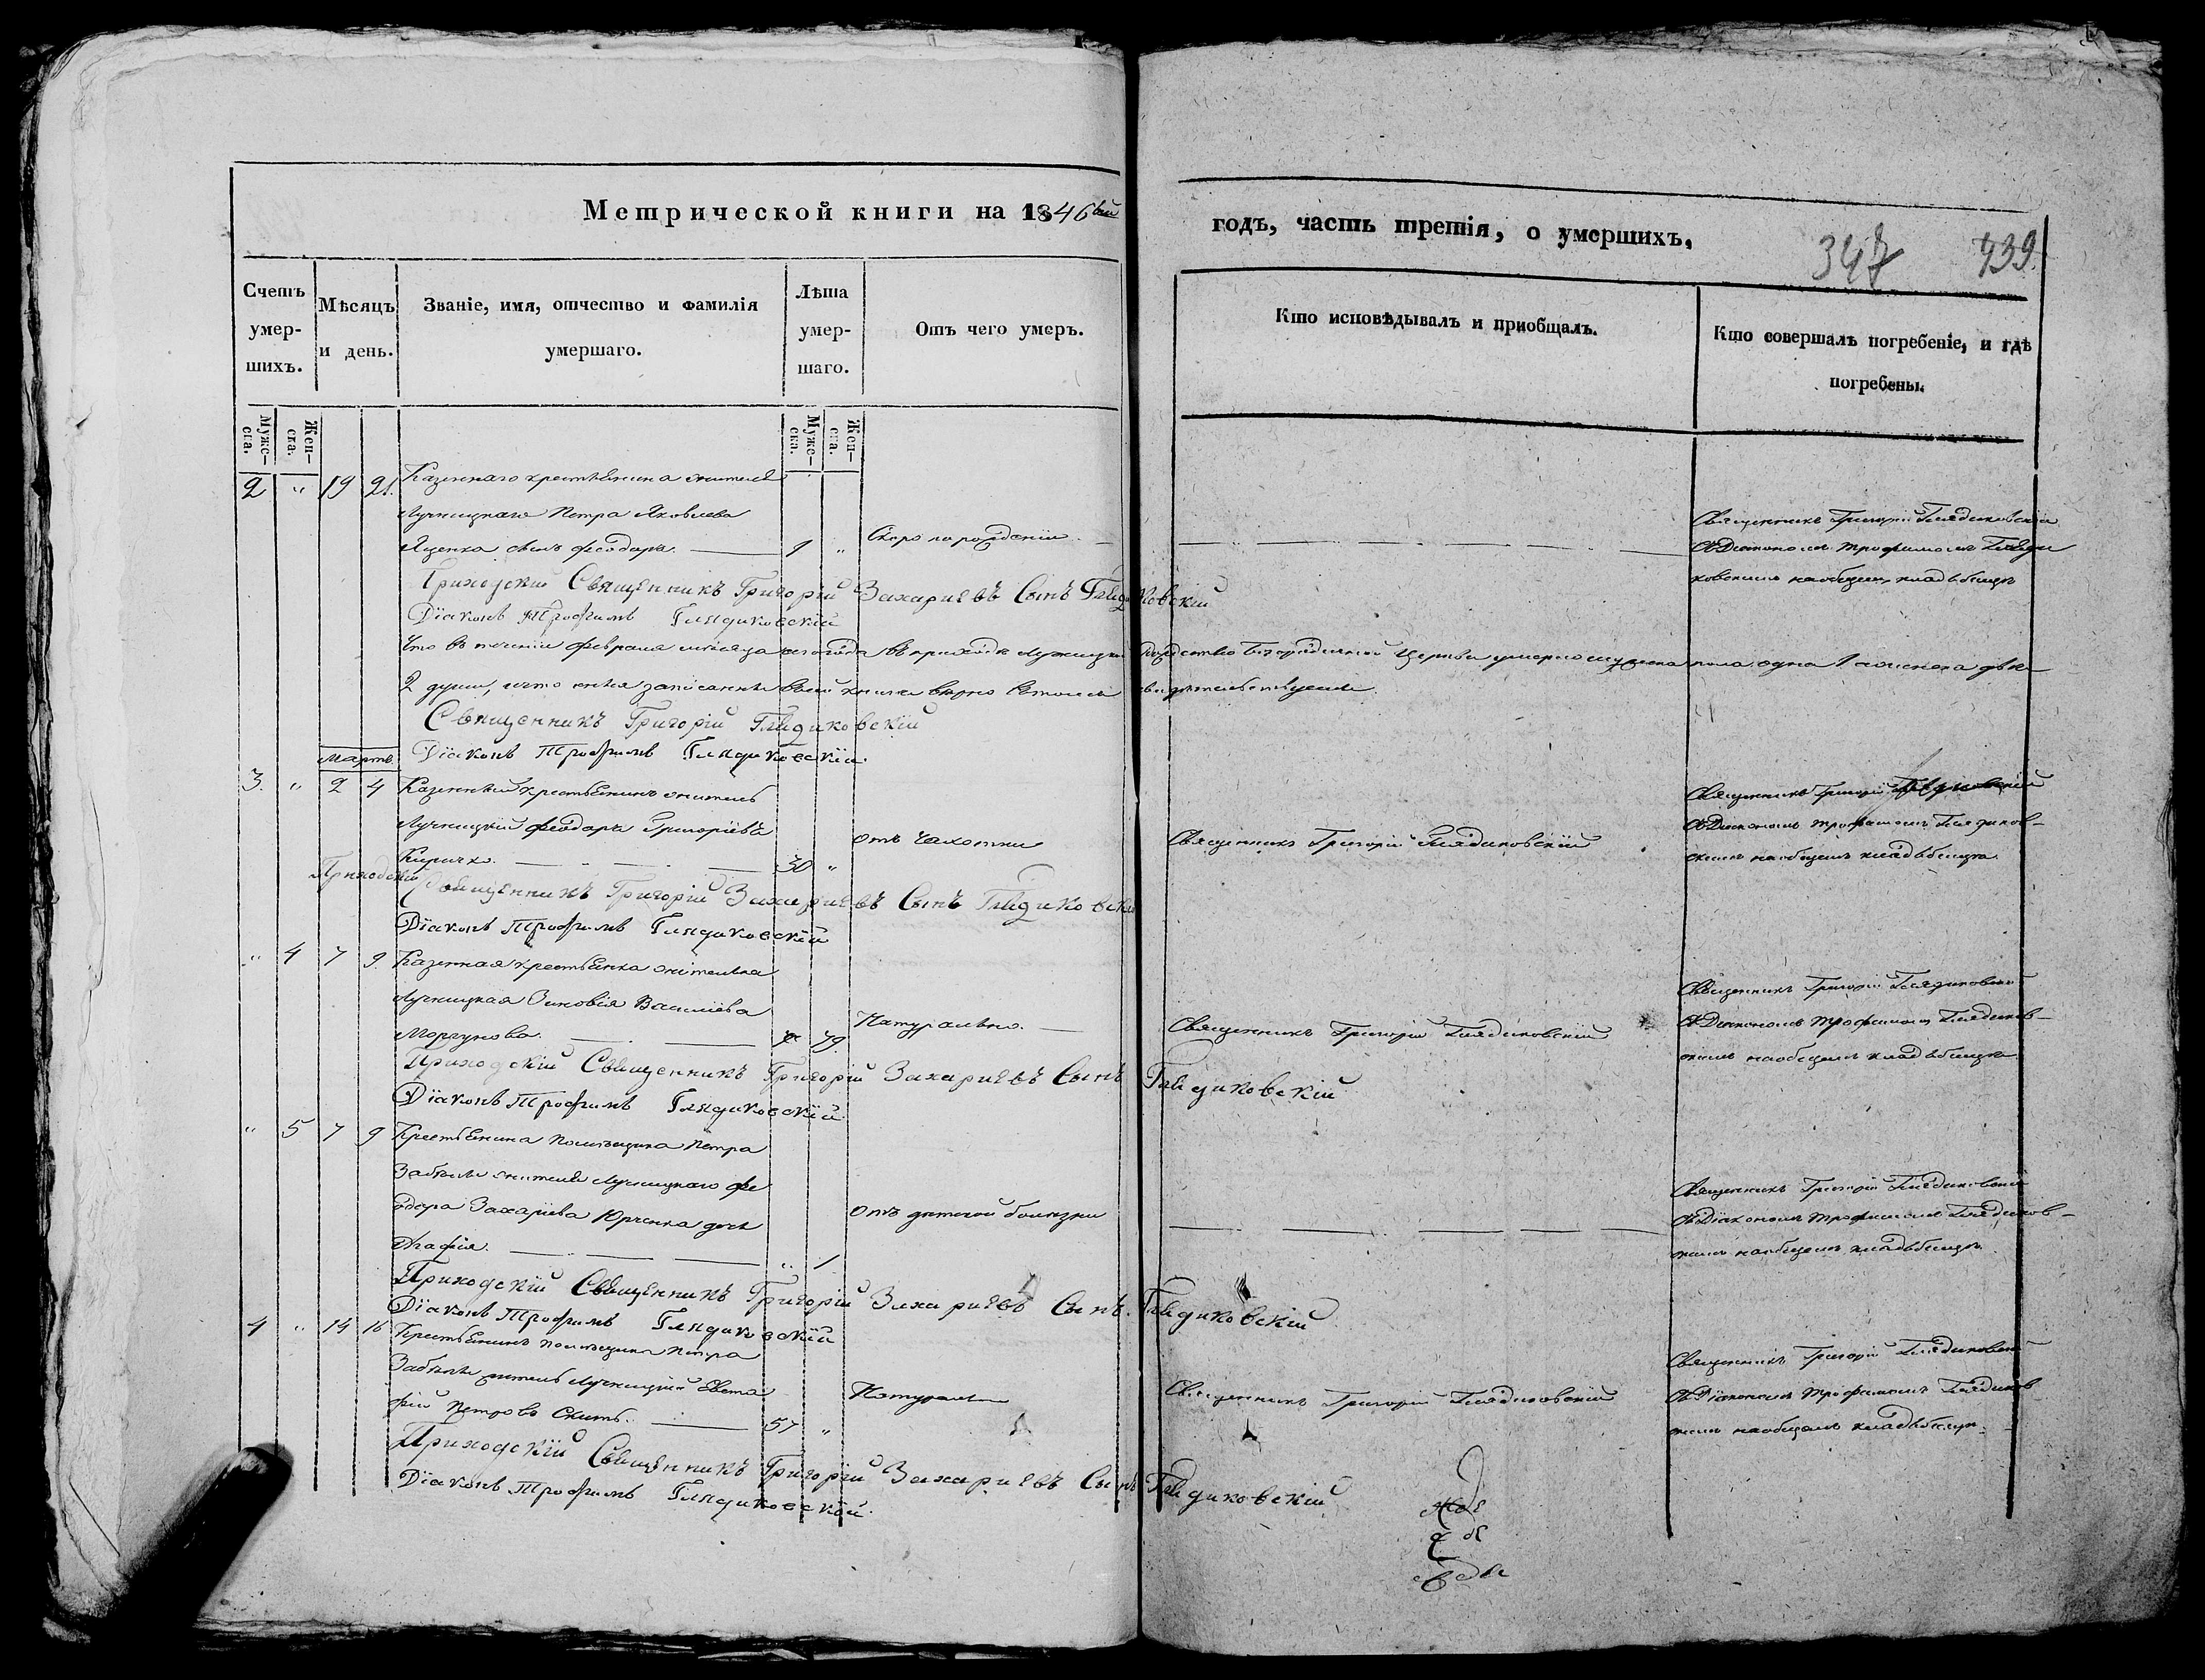 Метрической книги на 1846ый
годъ, часть третія, о умершихъ.
347 439
Счетъ умер-шихъ.
Мѣсяцъ и день.
Званіе, имя, отчество и фамилія умершаго.
Лѣта умер-шаго.
Отъ чего умеръ.
Кто исповѣдывалъ и пріобщалъ.
Кто совершалъ погребеніе, и гдѣ погребены.
Мужс-ска.
Жен-ска.
Мужс-ска.
Жен-ска.
2 " 19 21. Казеннаго крестьянина жителя
Лучницкаго Петра Яковлева
Яценка сынъ Феодоръ. 1 "
Скоро по рожденіи.
Священникъ Григорій Глядиковскій
съ Діакономъ Трофимомъ Гляди
ковскимъ на общемъ кладбищѣ
Приходскій Священникъ Григорій Захаріевъ Сынъ Глядиковскій
Діаконъ Трофимъ Глядиковскій
Что въ теченіи февраля мѣсяца сего года въ приходѣ Рождество Богородичной Церкви умерло мужеска пола одна 1 а женска двѣ
2 души, и что они записаны вѣрно въ томъ свидѣтельствуемъ.
Священникъ Григорій Глядиковскій
Діаконъ Трофимъ Глядиковскій.
Мартъ.
3. " 2 4 Казенный крестьянинъ житель
Лучницкій Феодоръ Григоріевъ
Киричко. 30 "
отъ чахотки
Священникъ Григорій Глядиковскій
Священникъ Григорій Глядиковскій
съ Діакономъ Трофимомъ Глядиков-
скимъ на общемъ кладбищѣ.
Приходскій Священникъ Григорій Захаріевъ Сынъ Глядиковскій
Діаконъ Трофимъ Глядиковскій
" 4 7 9. Казенная крестьянка жителька
Лучницкая Зиновія Василіева
Моргунова. " 79.
Натурально.
Священникъ Григорій Глядиковскій
Священникъ Григорій Глядиковскій
съ Діакономъ Трофимомъ Глядиков-
скимъ на общемъ кладбищѣ
Приходскій Священникъ Григорій Захаріевъ Сынъ Глядиковскій
Діаконъ Трофимъ Глядиковскій.
" 5 7 9 Крестьянина помѣщика Петра
Забѣлы жителя Лучницкаго Фе
одора Захаріева Юрченка дочь
Агафія. " 1
отъ дѣтской болѣзни
Священникъ Григорій Глядиковскій
съ Діакономъ Трофимомъ Глядиков-
скимъ на общемъ кладбищѣ.
Приходскій Священникъ Григорій Захаріевъ Сынъ Глядиковскій
Діаконъ Трофимъ Глядиковскій
4 " 14 16 Крестьянинъ помѣщика Петра
Забѣлы житель Лучницкій Евста
фій Петровъ 57 "
Натурально
Священникъ Григорій Глядиковскій
Священникъ Григорій Глядиковскій
съ Діакономъ Трофимомъ Глядиков
скимъ на общемъ кладбищѣ.
Приходскій Священникъ Григорій Захаріевъ Сынъ Глядиковскій
Діаконъ Трофимъ Глядиковскій.